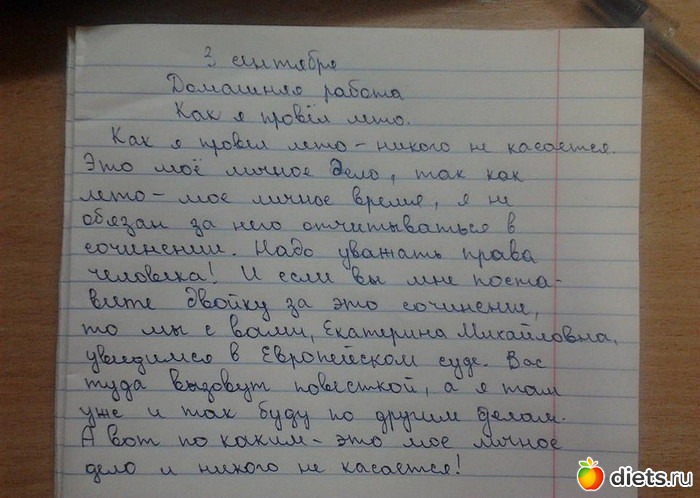 3 сентября
Домашняя работа
Как я провёл лето.
Как я провел лето - никого не касается.
Это моё личное дело, так как
лето - мое личное время, я не
обязан за него отчитываться в
сочинении. Надо уважать права
человека! И если вы мне поста-
вите двойку за это сочинение,
то мы с вами, Екатерина Михайловна,
увидимся в Европейском суде. Вас
туда вызовут повесткой, а я там
уже и так буду по другим делам.
А вот по каким - это мое личное
дело и никого не касается!
diets.ru